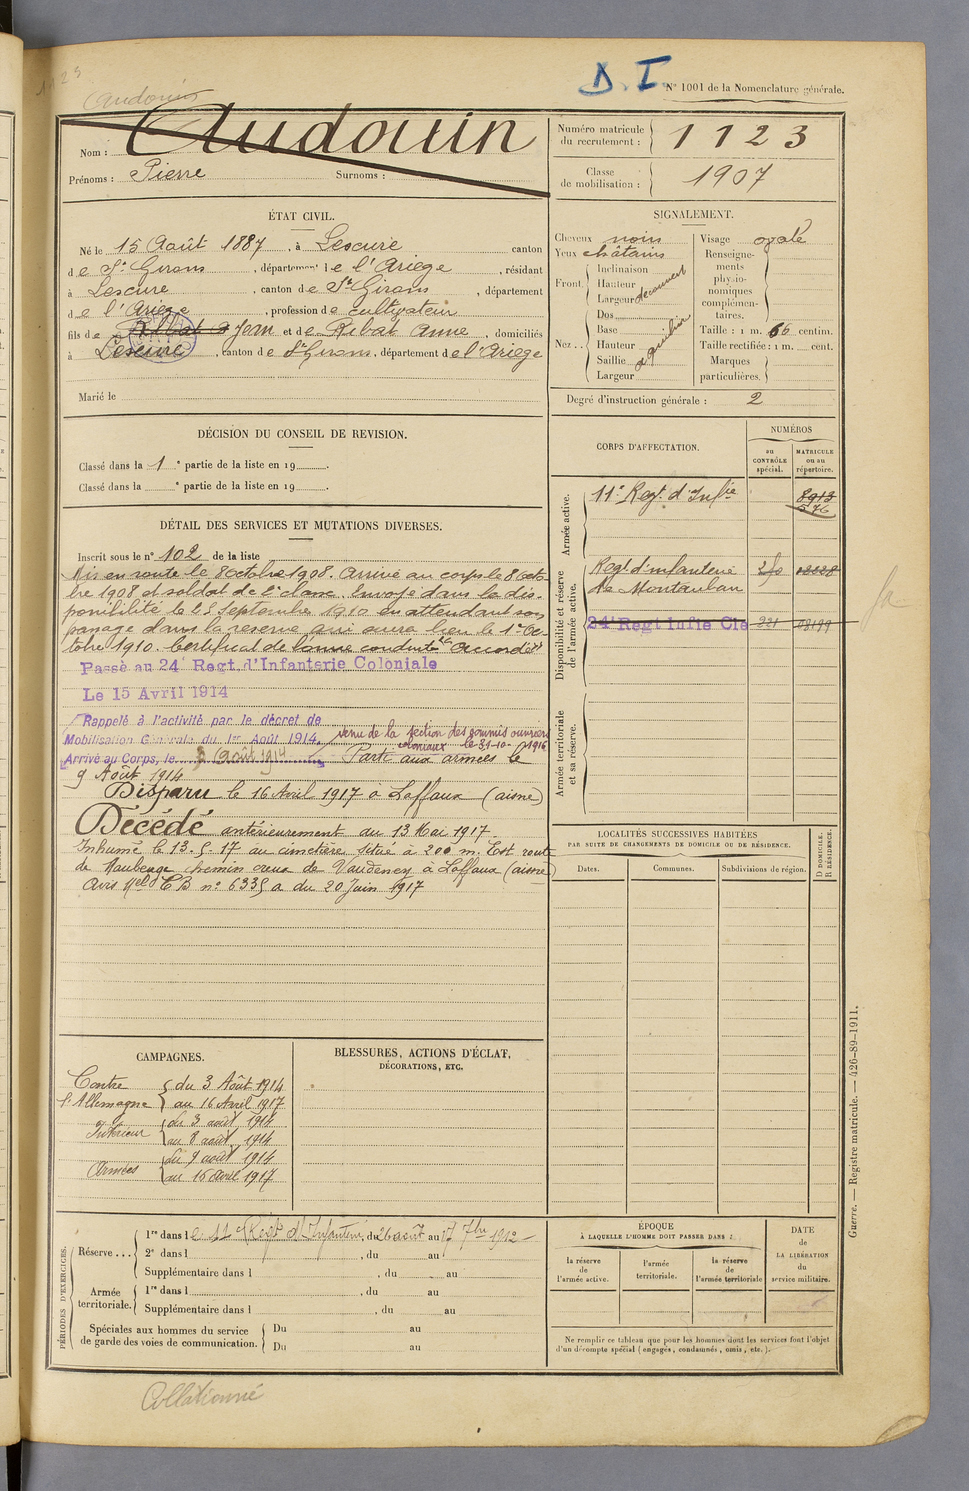 1123
Audouin
D. I.
N° 1001 de la Nomenclature générale.
Nom : Audouin
Prénoms : Pierre Surnoms :
Numéro matricule du recrutement : 1123
Classe de mobilisation : 1907
ÉTAT CIVIL.
Né le 15 Août 1887, à Lescure canton
de St Girons, département de l'Ariège, résidant
à Lescure, canton de St Girons, département
de l'Ariège, profession de cultivateur
fils de Jean et de Ribat Anne, domiciliés
à Lescure, canton de St Girons, département de l'Ariège
Marié le
SIGNALEMENT.
Cheveux noirs
Yeux châtains
Front. Inclinaison
Hauteur
Largeur
Nez.. Dos
Base
Hauteur
Saillie
Largeur
aquilin
Visage ovale
Renseignements physionomiques complémentaires.
Taille : 1 m. 66 centim.
Taille rectifiée : 1 m. cent.
Marques particulières.
Degré d'instruction générale : 2
DÉCISION DU CONSEIL DE REVISION.
Classé dans la 1e partie de la liste en 19
Classé dans la e partie de la liste en 19
DÉTAIL DES SERVICES ET MUTATIONS DIVERSES.
Inscrit sous le n° 102 de la liste
Mis en route le 8 Octobre 1908. Arrivé au corps le 8 octo-
bre 1908 et soldat de 2e classe. Envoyé dans la dis-
ponibilité le 25 Septembre 1910 en attendant son
passage dans la réserve qui aura lieu le 1er Oc-
tobre 1910. Certificat de bonne conduite "accordé"
Passé au 24e Regt. d'Infanterie Coloniale
Le 15 Avril 1914
Rappelé à l'activité par le décret de
Mobilisation Générale du 1er Août 1914.
Arrivé au Corps, le 3 Août 1914
venu de la section des commis ouvriers
coloniaux le 31-10-1916
Parti aux armées le
9 Août 1914
Disparu le 16 Avril 1917 à Laffaux (aisne)
Décédé antérieurement au 13 Mai 1917.
Inhumé le 13.5.17 au cimetière situé à 200 m. Est route
de Maubeuge chemin creux de Vaudeney à Laffaux (aisne)
Avis Mel CB n° 6335 a du 20 Juin 1917
CORPS D'AFFECTATION.
NUMÉROS
au CONTRÔLE spécial.
MATRICULE ou au répertoire.
Armée active.
11e Regt. d'Infie 8913
576
Disponibilité et réserve de l'armée active.
Regt. d'infanterie
de Montauban
24e Regt Infie Cle 221 08199
Armée territoriale et sa réserve.
LOCALITÉS SUCCESSIVES HABITÉES
PAR SUITE DE CHANGEMENTS DE DOMICILE OU DE RÉSIDENCE.
D DOMICILE.
R RÉSIDENCE.
Dates. Communes. Subdivisions de région.
CAMPAGNES.
Contre l'Allemagne du 3 Août 1914
au 16 Avril 1917
Intérieur du 3 août 1914
au 8 août 1914
Armées du 9 août 1914
au 16 avril 1917
BLESSURES, ACTIONS D'ÉCLAT,
DÉCORATIONS, ETC.
PÉRIODES D'EXERCICES.
Réserve ... 1re dans le 11e Régt d'Infanterie, du 26 août au 17 7bre 1912
2e dans l , du au
Supplémentaire dans l , du au
Armée territoriale. 1re dans l , du au
Supplémentaire dans l , du au
Spéciales aux hommes du service de garde des voies de communication. Du au
Du au
ÉPOQUE
À LAQUELLE L'HOMME DOIT PASSER DANS :
la réserve de l'armée active.
l'armée territoriale.
la réserve de l'armée territoriale
DATE de LA LIBÉRATION du service militaire.
Ne remplir ce tableau que pour les hommes dont les services font l'objet
d'un décompte spécial (engagés, condamnés, omis, etc.).
Guerre. — Registre matricule. — 426-89-1911.
Collationné